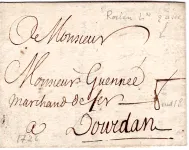 A Monsieur
Monsieur Guennée
Marchand de fer
a Dourdan
1726